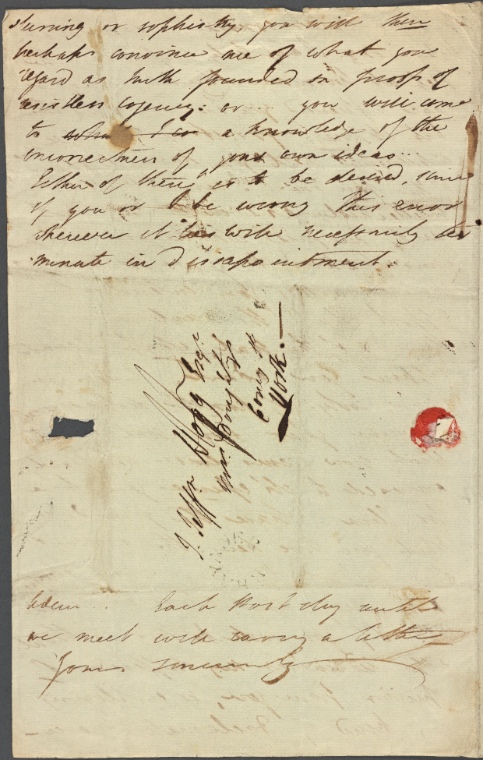 or sophistry, you will then
perhaps convince me of what you
regard as truth founded in proofs of
resistless cogency: or ... you will come
to a knowledge of the
incorrectness of your own ideas...
Either of these is to be desired, since
if you or I be wrong this error
wherever it lies will necessarily ter
minate in disappointment.
T. Jeffn Hogg Esqr.
Mrs
Coney St
York.—
Adieu .. Each Post day until
we meet will carry a letter
Yours sincerely